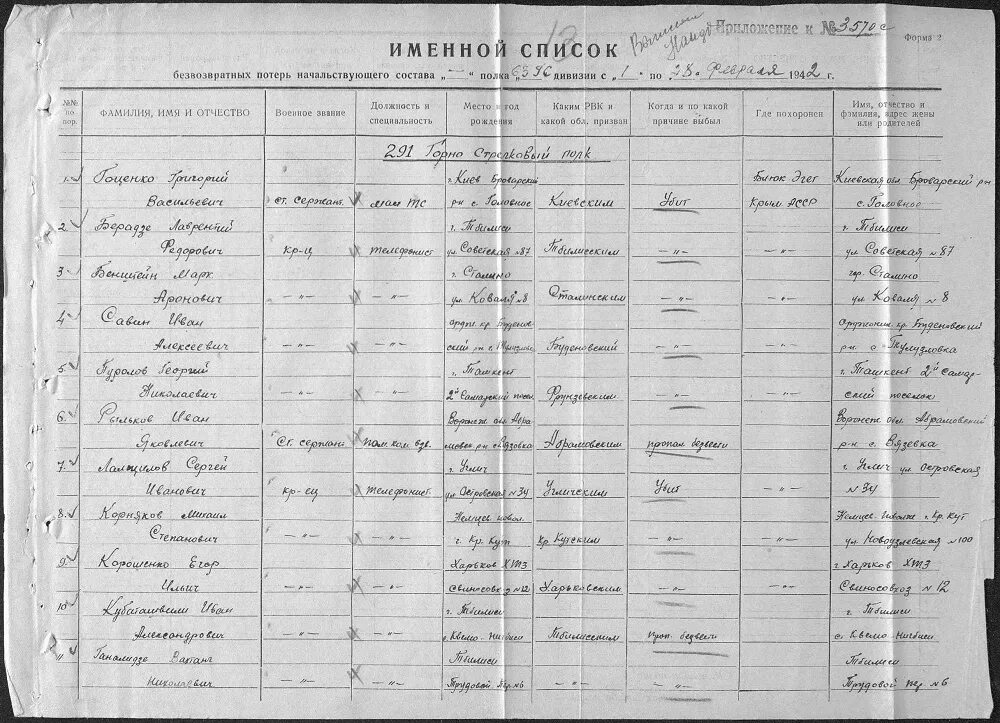 Приложение к №3570с
Форма 2
ИМЕННОЙ СПИСОК
безвозвратных потерь начальствующего состава „—" полка „63 дивизии с „1" по „28" Февраля 1942 г.
№№ по пор. ФАМИЛИЯ, ИМЯ И ОТЧЕСТВО Военное звание Должность и специальность Место и год рождения Каким РВК и какой обл. призван Когда и по какой причине выбыл Где похоронен Имя, отчество и фамилия, адрес жены или родителей
291 Горно Стрелковый полк
1. Гоценко Григорий г. Киев Броварский Киевская обл. Броварский рн
Васильевич ст. сержант. р-н с. Головное Киевским Убит Крым АССР с. Головное
2 Берадзе Лаврентий г. Тбилиси г. Тбилиси
Федорович кр-ц телефонист ул Советская №87 Тбилисским —„— —„— ул Советская №87
3 Бенштейн Марк г. Сталино гор. Сталино
Аронович —„— —„— ул Коваля №8 Сталинским —„— —„— ул Коваля №8
4 Савин Иван
Алексеевич —„— —„— Буденовский —„— —„— рн с Тулузловка
5 Георгий г. Ташкент г. Ташкент 2й Самар-
Николаевич —„— —„— 2й Самарский посел. Фрунзевским —„— —„— ский поселок
6. Рыльков Иван Воронеж обл. Абра Воронеж обл. Абрамовский
Яковлевич Ст. сержант пом. ком. взв. Абрамовским пропал безвести р-н с. Вязевка
7. Сергей г. Углич г. Углич ул Островская
Иванович кр-ец телефонист ул Островская №34 Угличским Убит —„— №34
8. Корняков Михаил г. Кр. Кут
Степанович —„— —„— г. Кр. Кут Кр Кутским —„— —„— ул Новоузлевская №100
9. Корошенко Егор Харьков ХТЗ г Харьков ХТЗ
Ильич —„— —„— Свиносовхоз №12 Харьковским —„— —„— Свиносовхоз №12
10 Кубаташвили Иван г. Тбилиси г. Тбилиси
Александрович —„— —„— Тбилисским проп. безвести
11 Вахтанг Тбилиси Тбилиси
Николаевич —„— —„— Трудовой пер. №6 —„— —„— Трудовой пер. №6